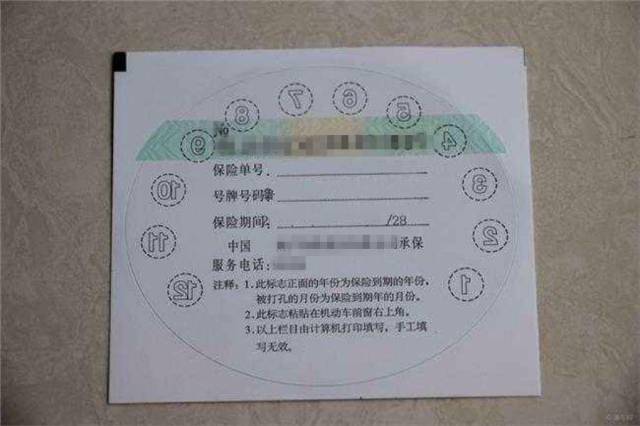 7 6
8 5
No
9 4
保险单号
10 3
号牌号码
保险期间: . . /28
11 2
中国 承保
服务电话:
12 1
注释: 1.此标志正面的年份为保险到期的年份,
被打孔的月份为保险到期年的月份。
2.此标志粘贴在机动车前窗右上角。
3.以上栏目由计算机打印填写，手工填
写无效。